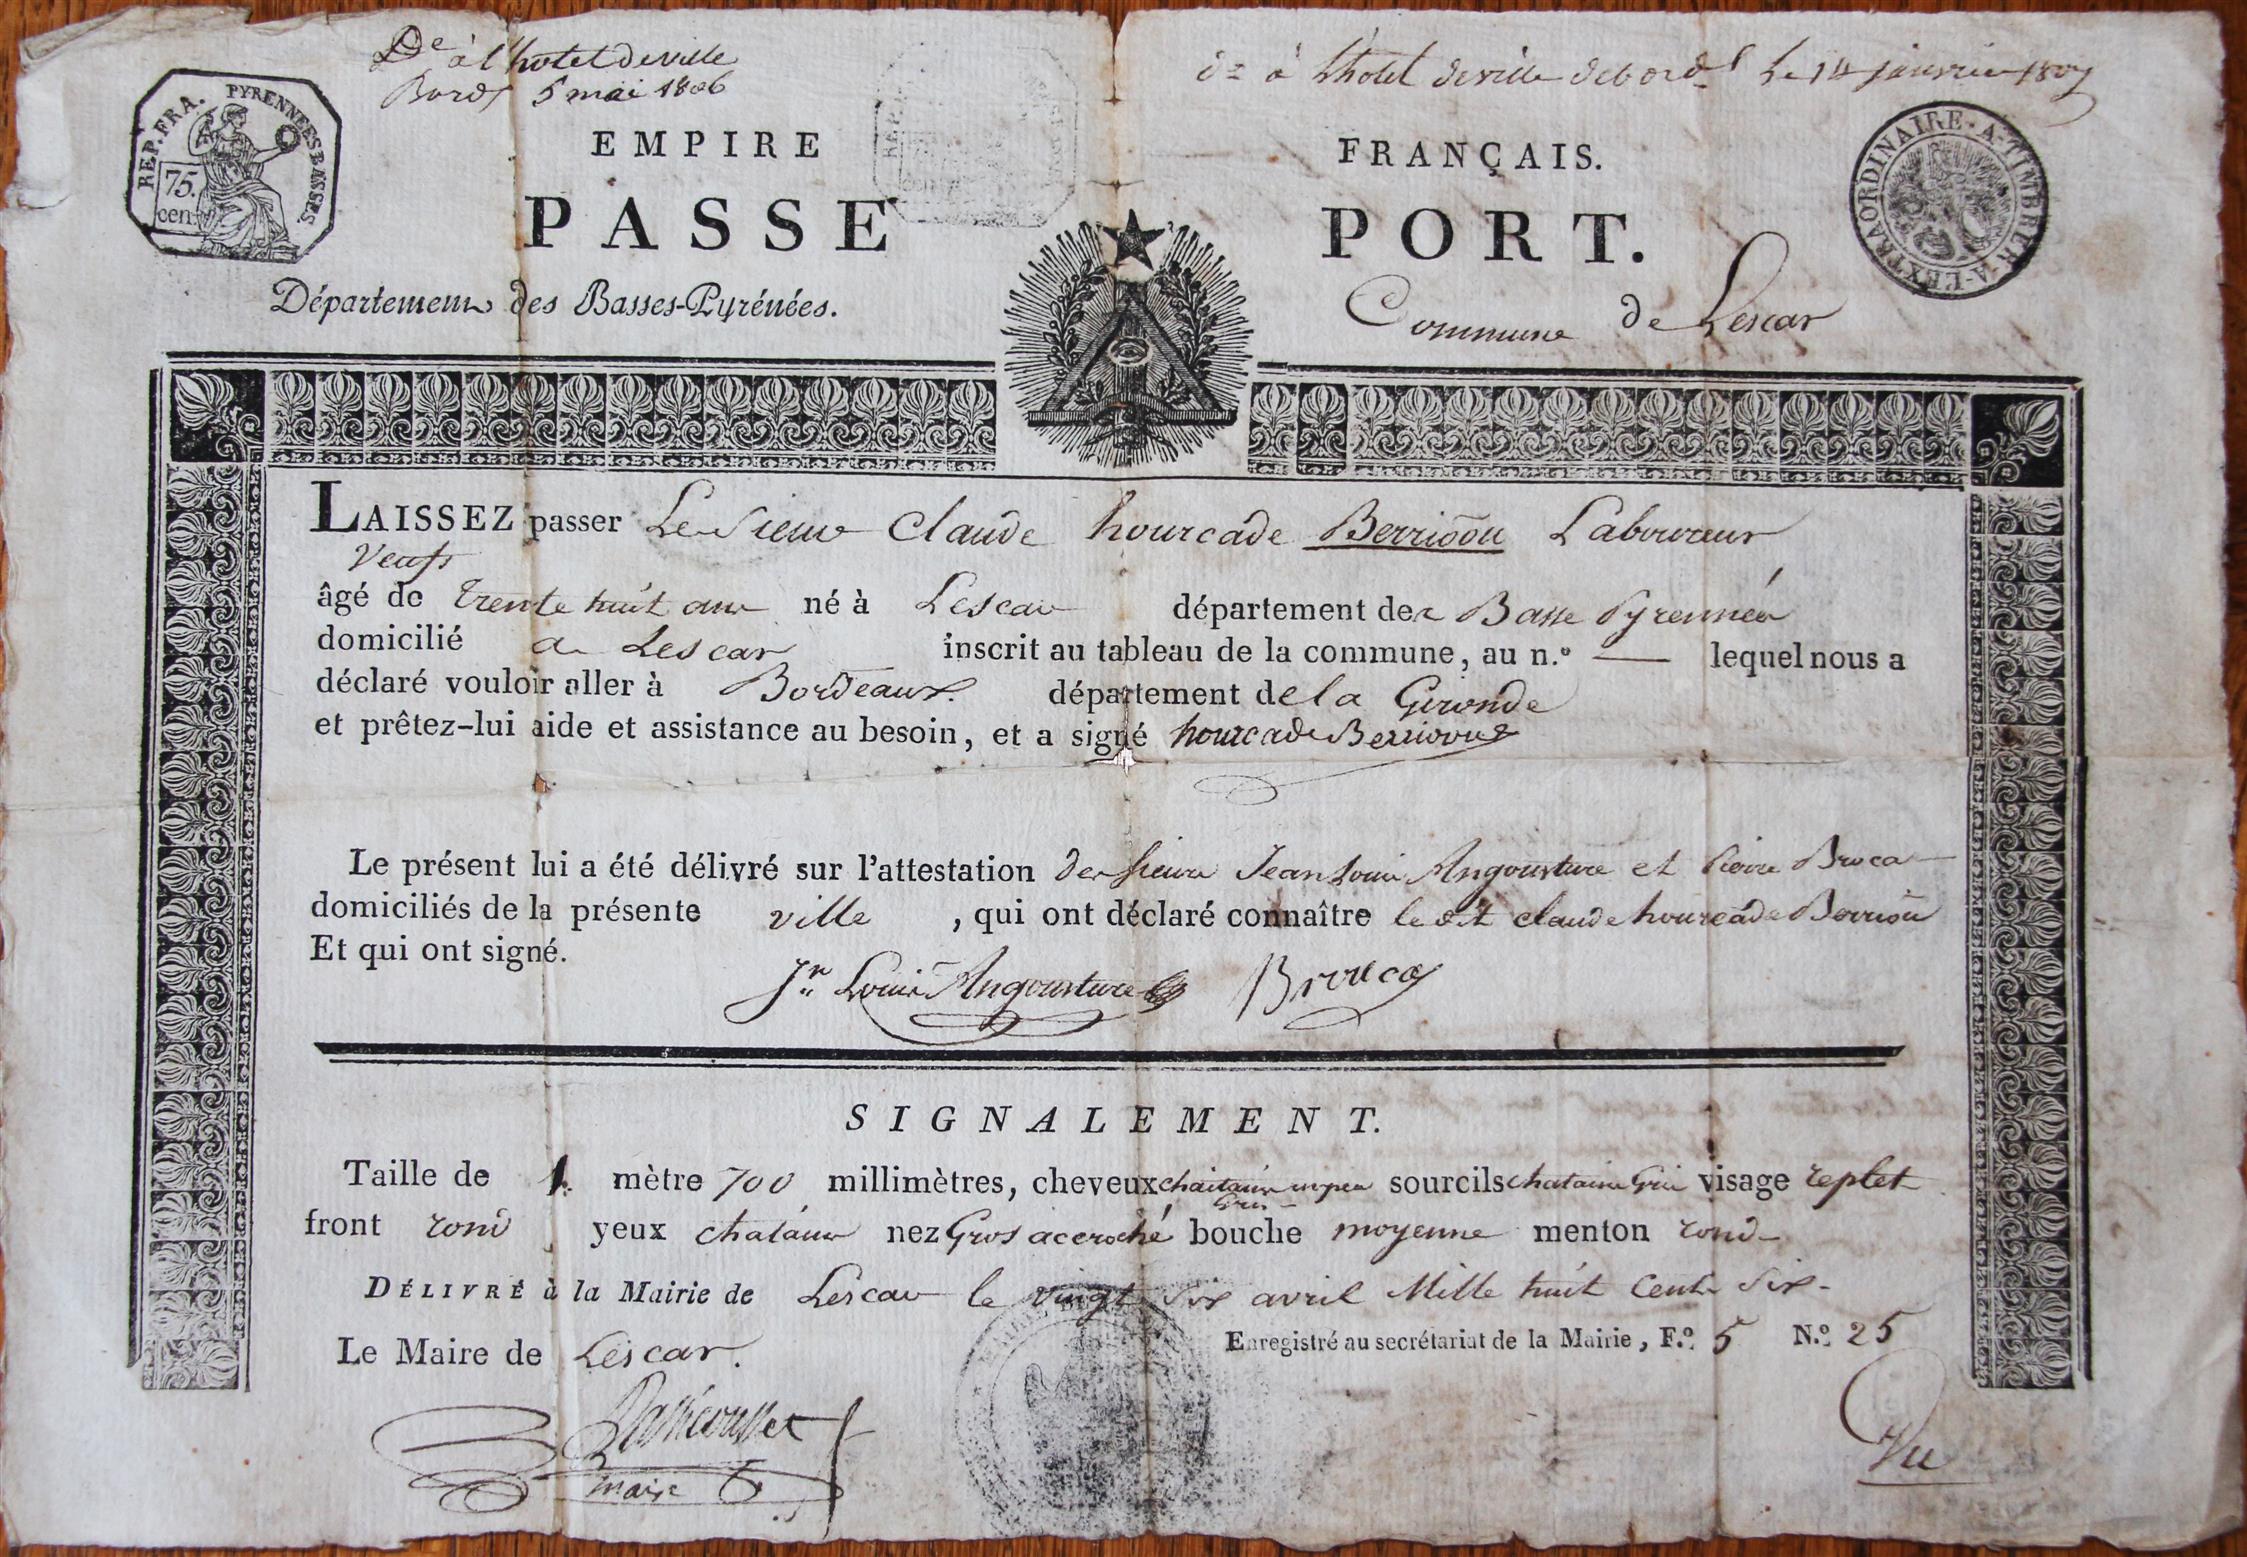 De à l'hotel de ville
Bordx 5 mai 1806
à Lhotel deville debord le 14 janvier 1807
REP. FRA. PYRENNÉES BASSES.
75.
cen.
A L'EXTRAORDINAIRE. A TIMBRER
EMPIRE FRANÇAIS.
PASSE PORT.
Département des Basses-Pyrénées.
Commune de Lescar
LAISSEZ passer Le Sieur Claude hourcade Berrioõu Laboureur
Veuf
âgé de trente huit ans né à Lescar département des Basse Pyrennées
domicilié a Lescar inscrit au tableau de la commune, au n.º — lequel nous a
déclaré vouloir aller à Bordeaux. département de la Gironde
et prêtez-lui aide et assistance au besoin, et a signé hourcade Berrioou
Le présent lui a été délivré sur l'attestation des sieurs Jean Louis Angousture et Pierre Broca
domiciliés de la présente ville, qui ont déclaré connaître le dit claude hourcade Berrioũ
Et qui ont signé.
Jn Louis Angousture Brouca
SIGNALEMENT.
Taille de 1. mètre 700 millimètres, cheveux chaitains un peu sourcils chatains Gris visage replet
Gris
front rond yeux chatains nez Gros accroché bouche moyenne menton rond
DÉLIVRÉ à la Mairie de Lescar le vingt six avril Mille huit Cents Six
Le Maire de Lescar. Enregistré au secrétariat de la Mairie, F.º 5 N.º 25
maire
Vu